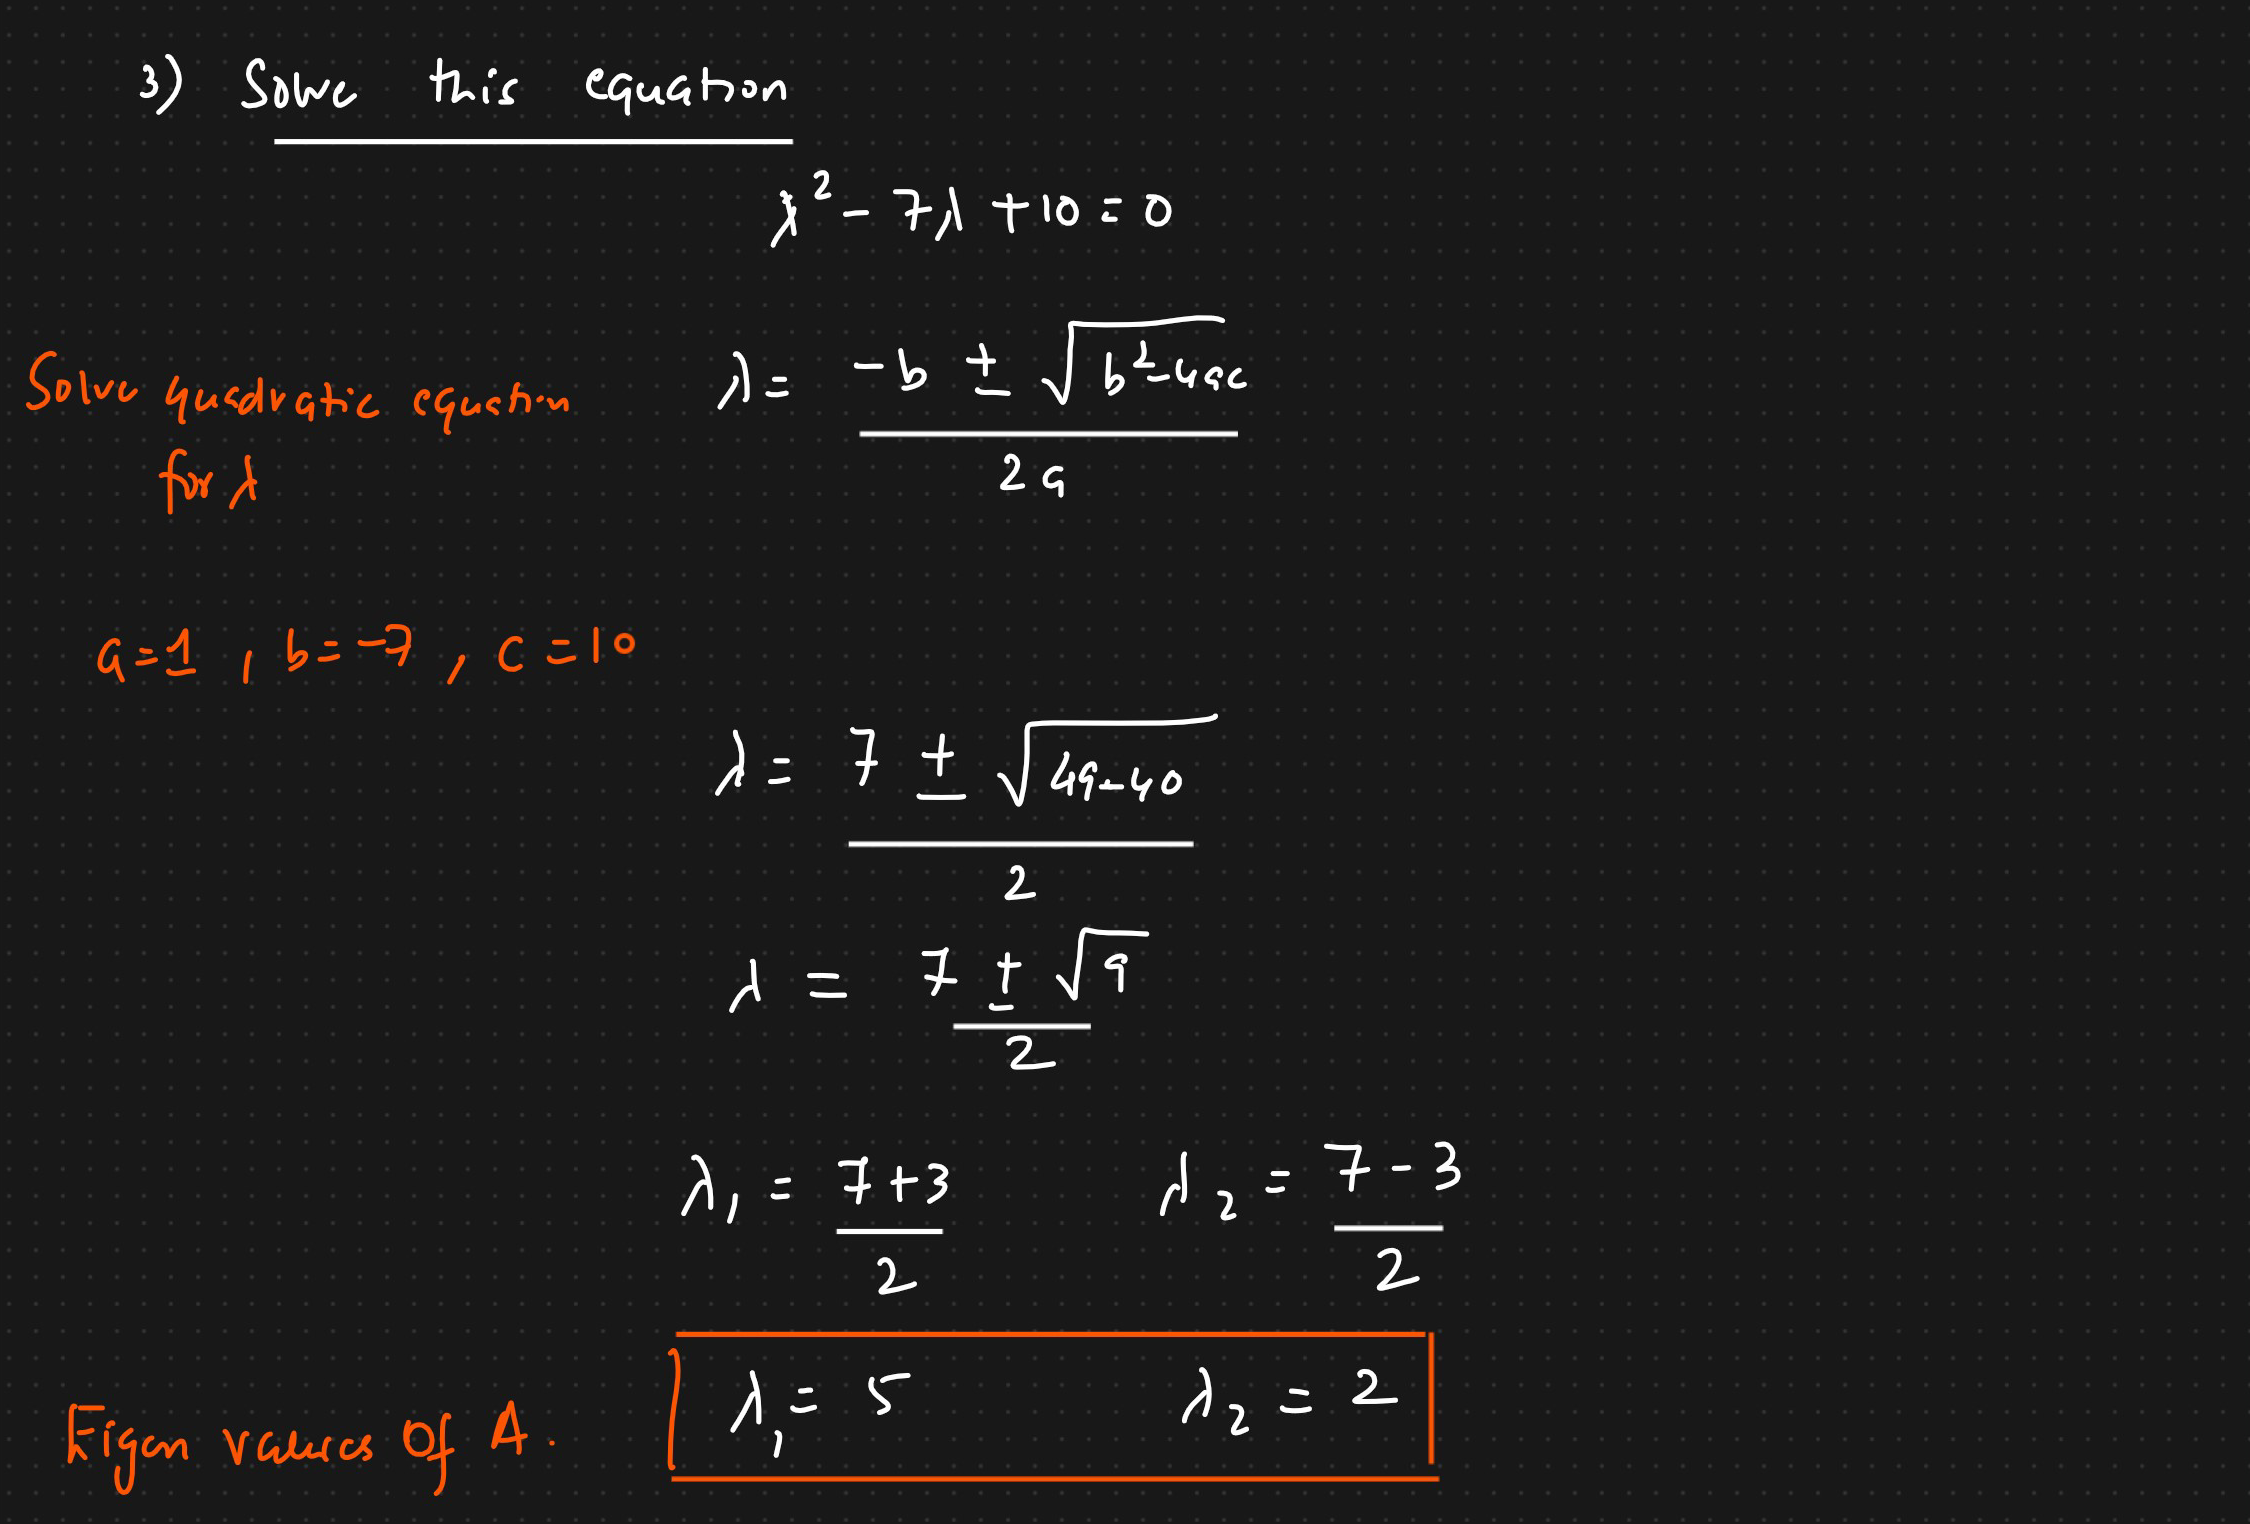 3) Solve this equation
λ² - 7λ + 10 = 0
Solve quadratic equation
for λ
λ = (-b ± √(b² - 4ac)) / 2a
a = 1 , b = -7 , c = 10
λ = (7 ± √(49 - 40)) / 2
λ = (7 ± √9) / 2
λ₁ = (7 + 3) / 2    λ₂ = (7 - 3) / 2
Eigen values of A. λ₁ = 5    λ₂ = 2